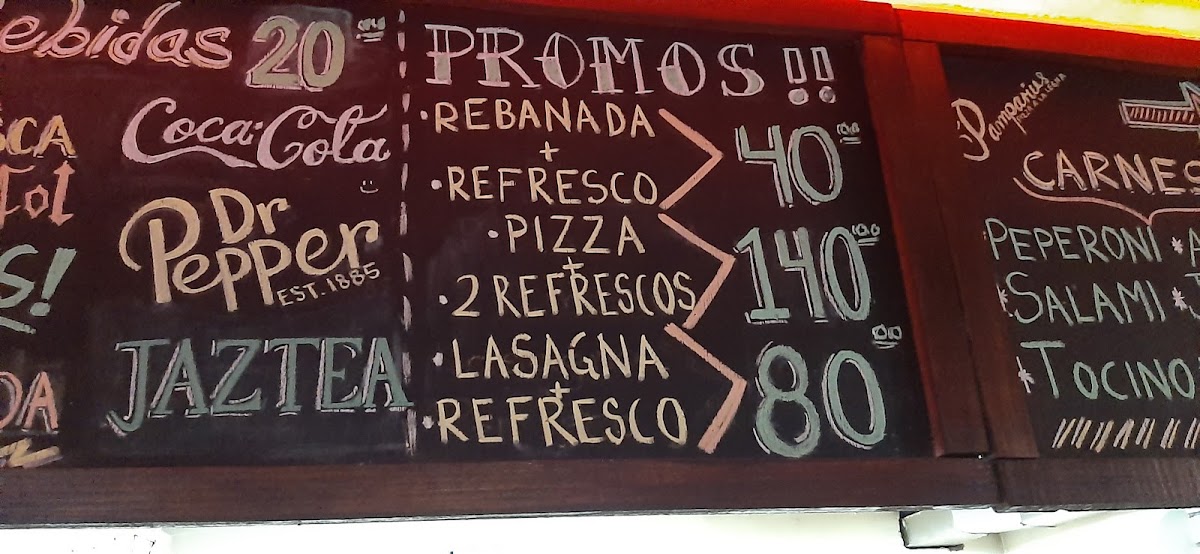 Bebidas 20.00
Coca-Cola
Dr
Pepper
EST. 1885
JAZTEA
PROMOS!!
• REBANADA
+
• REFRESCO
40.00
• PIZZA
+
• 2 REFRESCOS
140.00
• LASAGNA
+
• REFRESCO
80.00
CARNES
PEPERONI *
* SALAMI *
* TOCINO